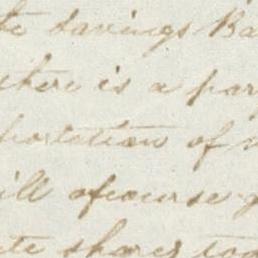 te Savings Ba
there is a par
portation of
ill ofcourse g
ate shares too